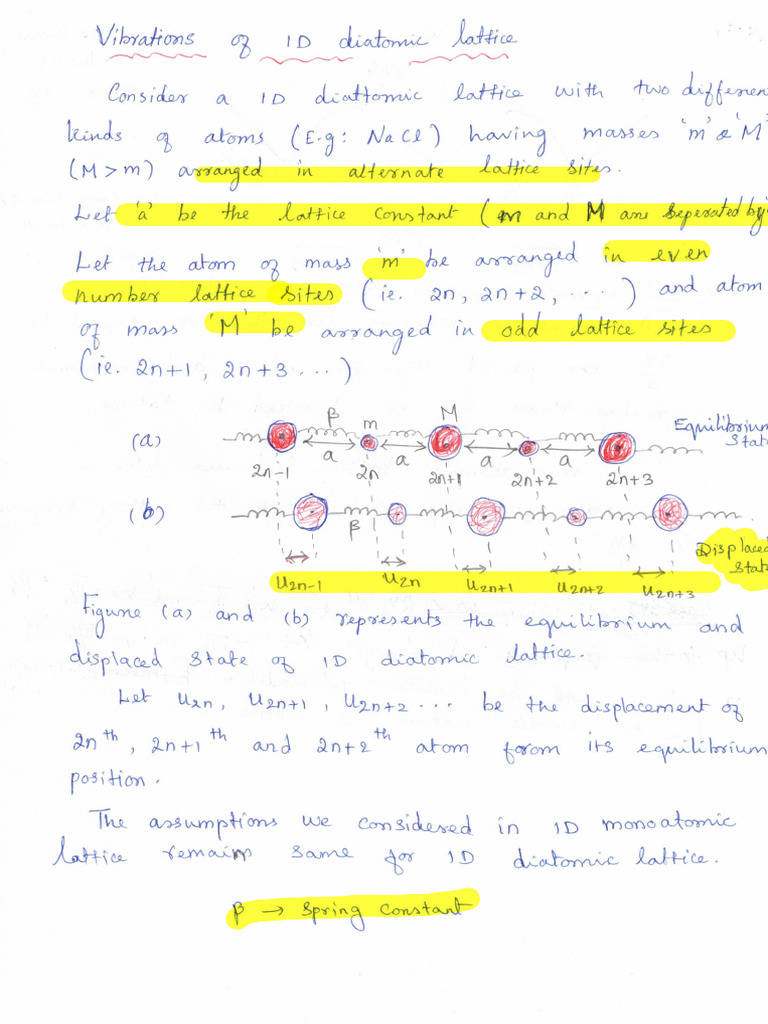 Vibrations of 1D diatomic lattice
Consider a 1D diattomic lattice with two differen
kinds of atoms (E.g: NaCl) having masses 'm' & 'M'
(M>m) arranged in alternate lattice sites.
Let 'a' be the lattice constant (m and M are seperated by
Let the atom of mass 'm' be arranged in even
number lattice sites (ie. 2n, 2n+2, ....) and atom
of mass 'M' be arranged in odd lattice sites
(ie. 2n+1, 2n+3 ...)
β m M
(a) a a a a Equilibrium State
2n-1 2n 2n+1 2n+2 2n+3
(b) β
Displaced State
u2n-1 u2n u2n+1 u2n+2 u2n+3
Figure (a) and (b) represents the equilibrium and
displaced state of 1D diatomic lattice.
Let u2n, u2n+1, u2n+2 ... be the displacement of
2nth, 2n+1th and 2n+2th atom forom its equilibrium
position.
The assumptions we considered in 1D monoatomic
lattice remain same for 1D diatomic lattice.
β → Spring constant